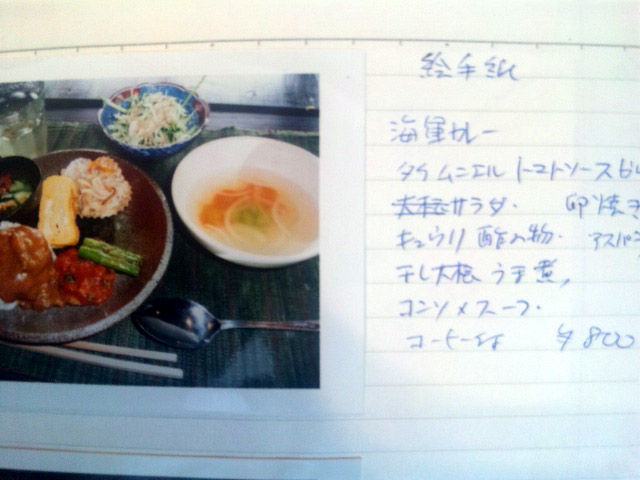 絵手紙
海軍カレー
タイ ムニエル トマトソース
大根サラダ. 卵焼き
キュウリ 酢の物. アスパラ
干し大根 うま煮,
コンソメスープ.
コーヒー付 ¥800